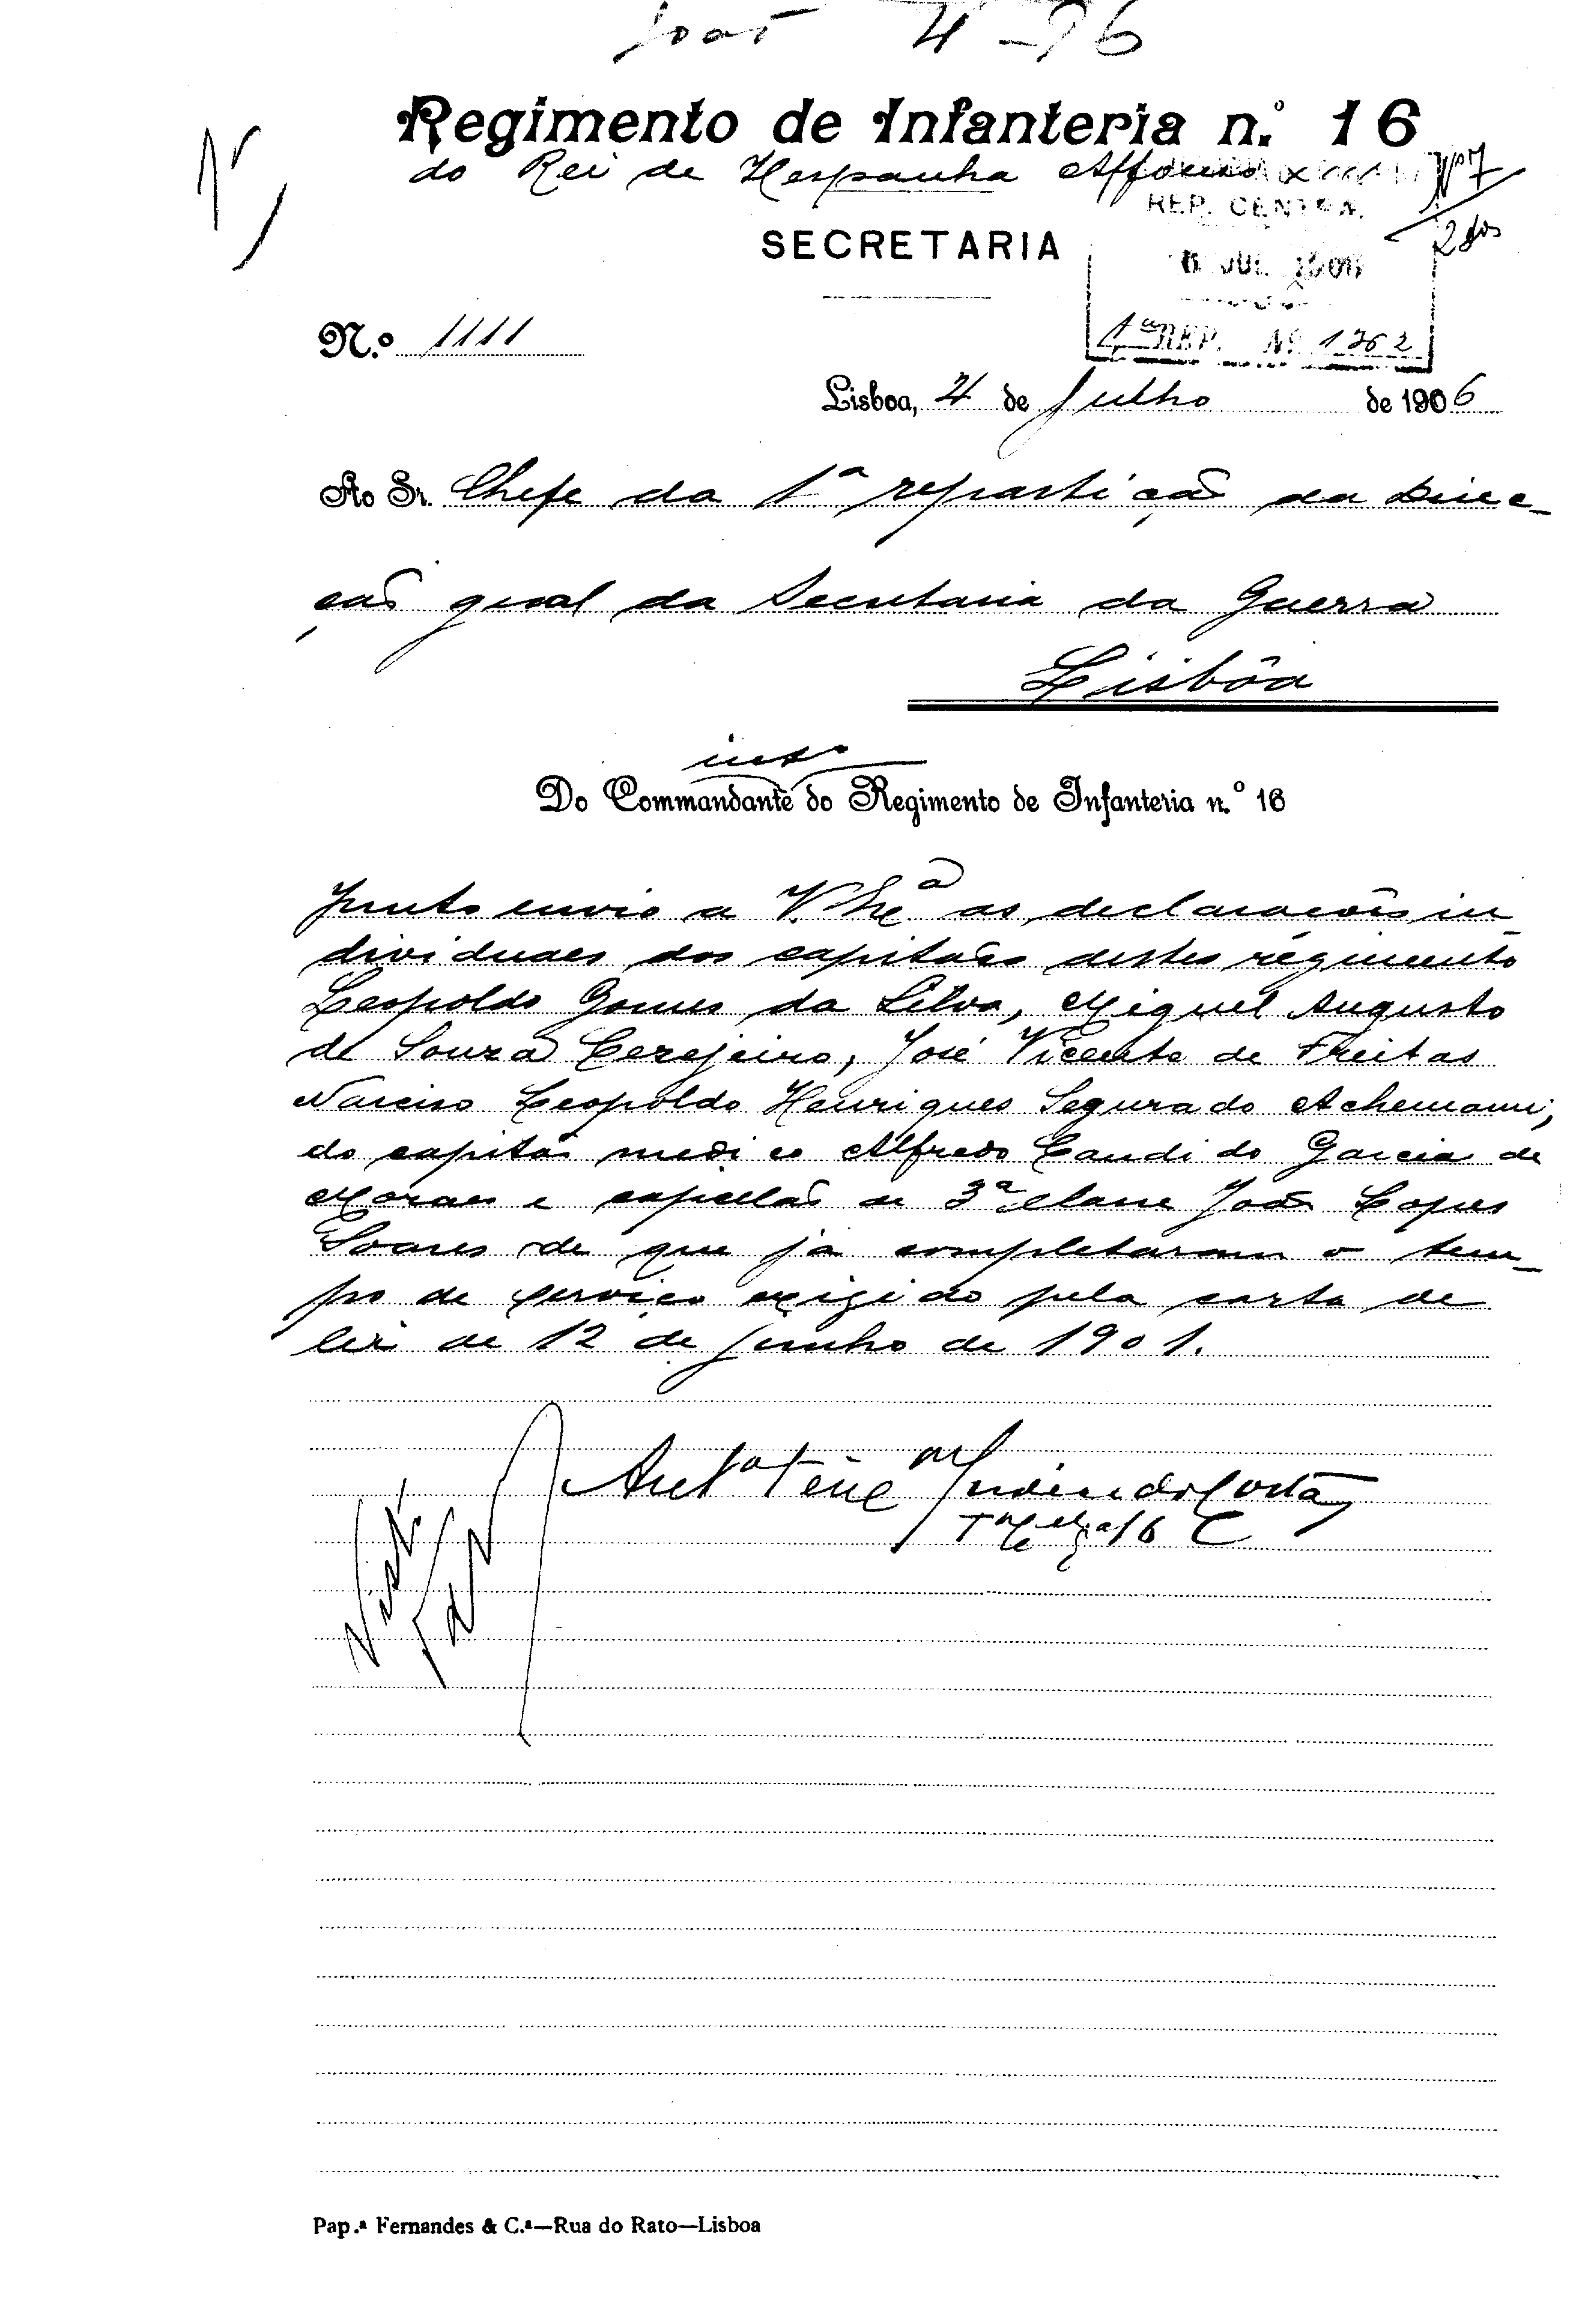 4-96
Regimento de Infanteria n.º 16
do Rei de Hespanha Affonso
Nº 7
REP. CENTRAL
2 dos
SECRETARIA
6 JUL 1906
N.º 1111
1ª REP. Nº 1362
Lisboa, 4 de Julho de 1906
Ao Sr. Chefe da 1ª repartição da Direc-
ção geral da Secretaria da Guerra
Lisbôa
intº
Do Commandante do Regimento de Infanteria n.º 16
Junto envio a V. Exª as declarações in-
dividuaes dos capitães destes regimento
Leopoldo Gomes da Silva, Miguel Augusto
de Souza Cerejeiro, José Vicente de Freitas
Narciso Leopoldo Henriques Segurado Achemann,
do capitão medico Alfredo Candido Garcia de
Moraes e capellão de 3ª classe João Lopes
Soares de que já completaram o tem-
po de serviço exigido pela carta de
lei de 12 de junho de 1901.
16
Pap.ª Fernandes & C.ª—Rua do Rato—Lisboa